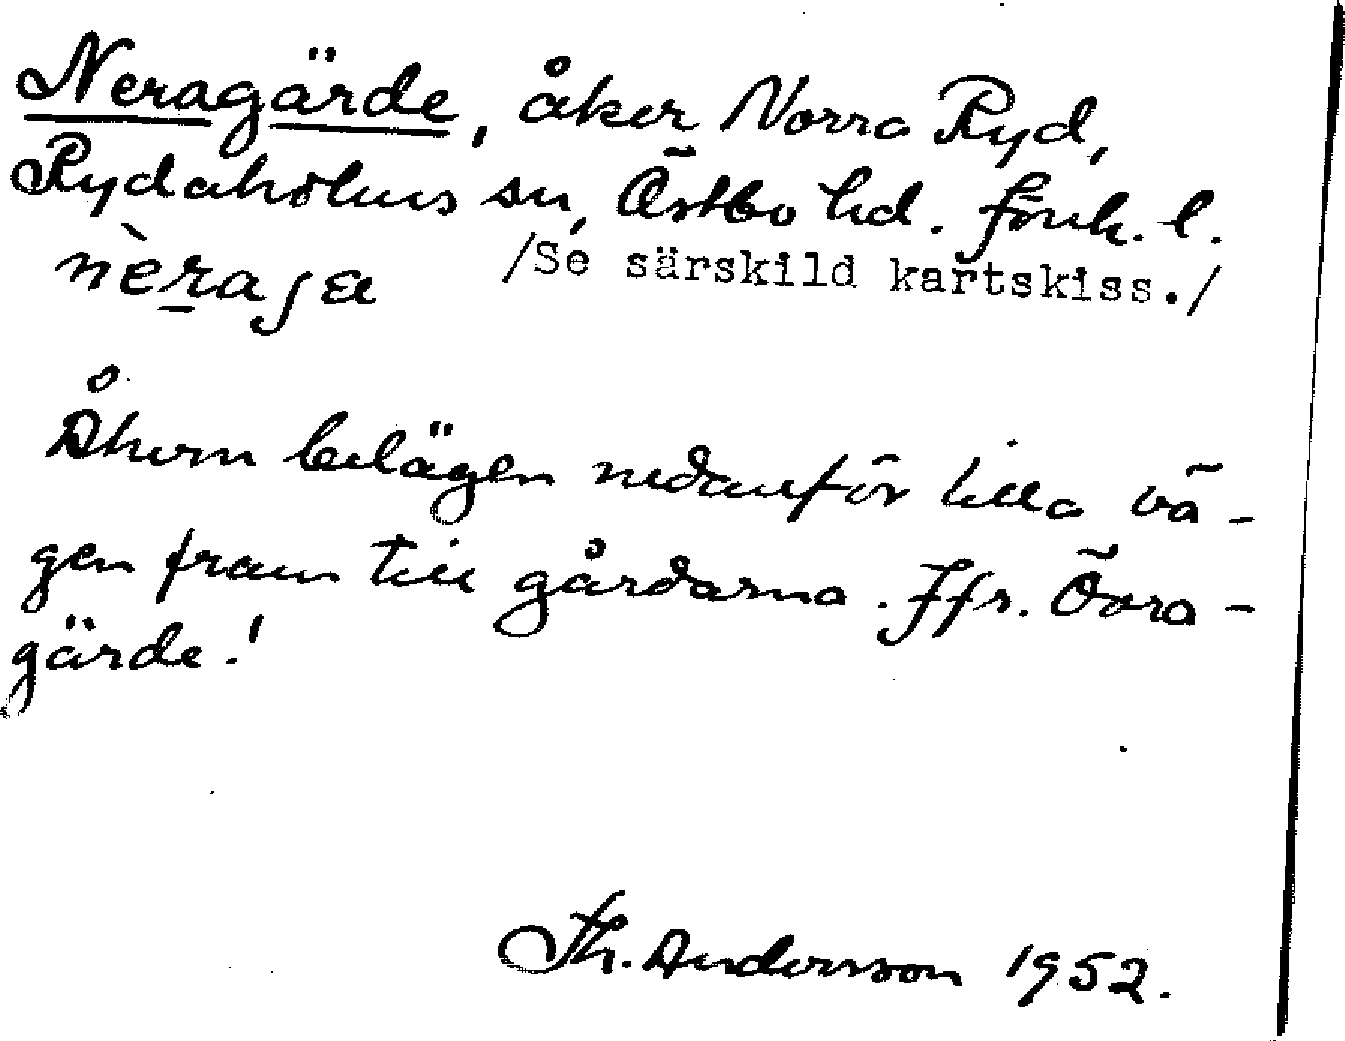 Neragärde, åker Norra Ryd,
Rydaholms sn, Östbo hd. Jönk. l.
nèraja /Se särskild kartskiss./
Åkern belägen nedanför lilla vä-
gen fram till gårdarna. Jfr. Övra-
gärde!
Th. Andersson 1952.